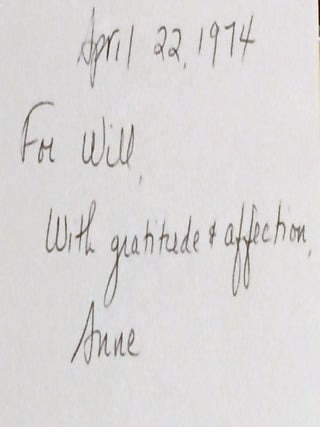 April 22, 1974
For Will,
With gratitude & affection,
Anne